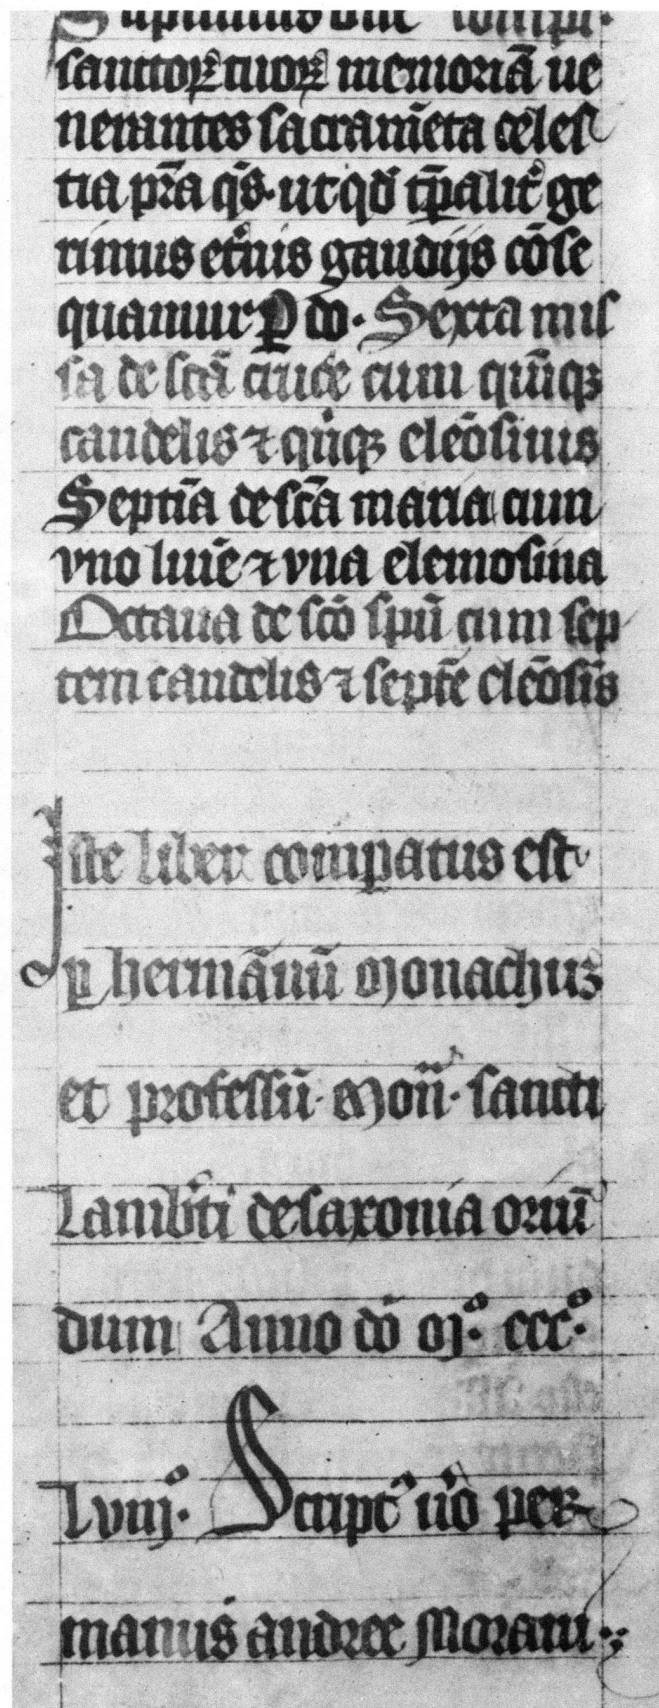 Sūpsimus dn̄e
sanctoꝝ tuoꝝ memoriā ue
nerantes sacram̄eta celes
tia pr̄a q̄s. ut qd̛ tp̄alit̛ ge
rimus et̛nis gaudijs cōse
quamur ꝑ do. Sexta mis
sa de sctā cruce cum qūiqꝫ
candelis ⁊ qūiqꝫ eleōsinis
Septīa de sctā maria cum
vno lumīe ⁊ vna elemosina
Octaua de scō spū cum sep
tem candelis ⁊ septē eleōsīs
Iste liber compatus est
ꝑ hermānū monachuꝫ
et professū mon̄. sancti
lamb̛ti de saxonia oriū
dum Anno dō mͦ. cccͦ.
lviijͦ. Script̛ ưo per
manus andree Moraui